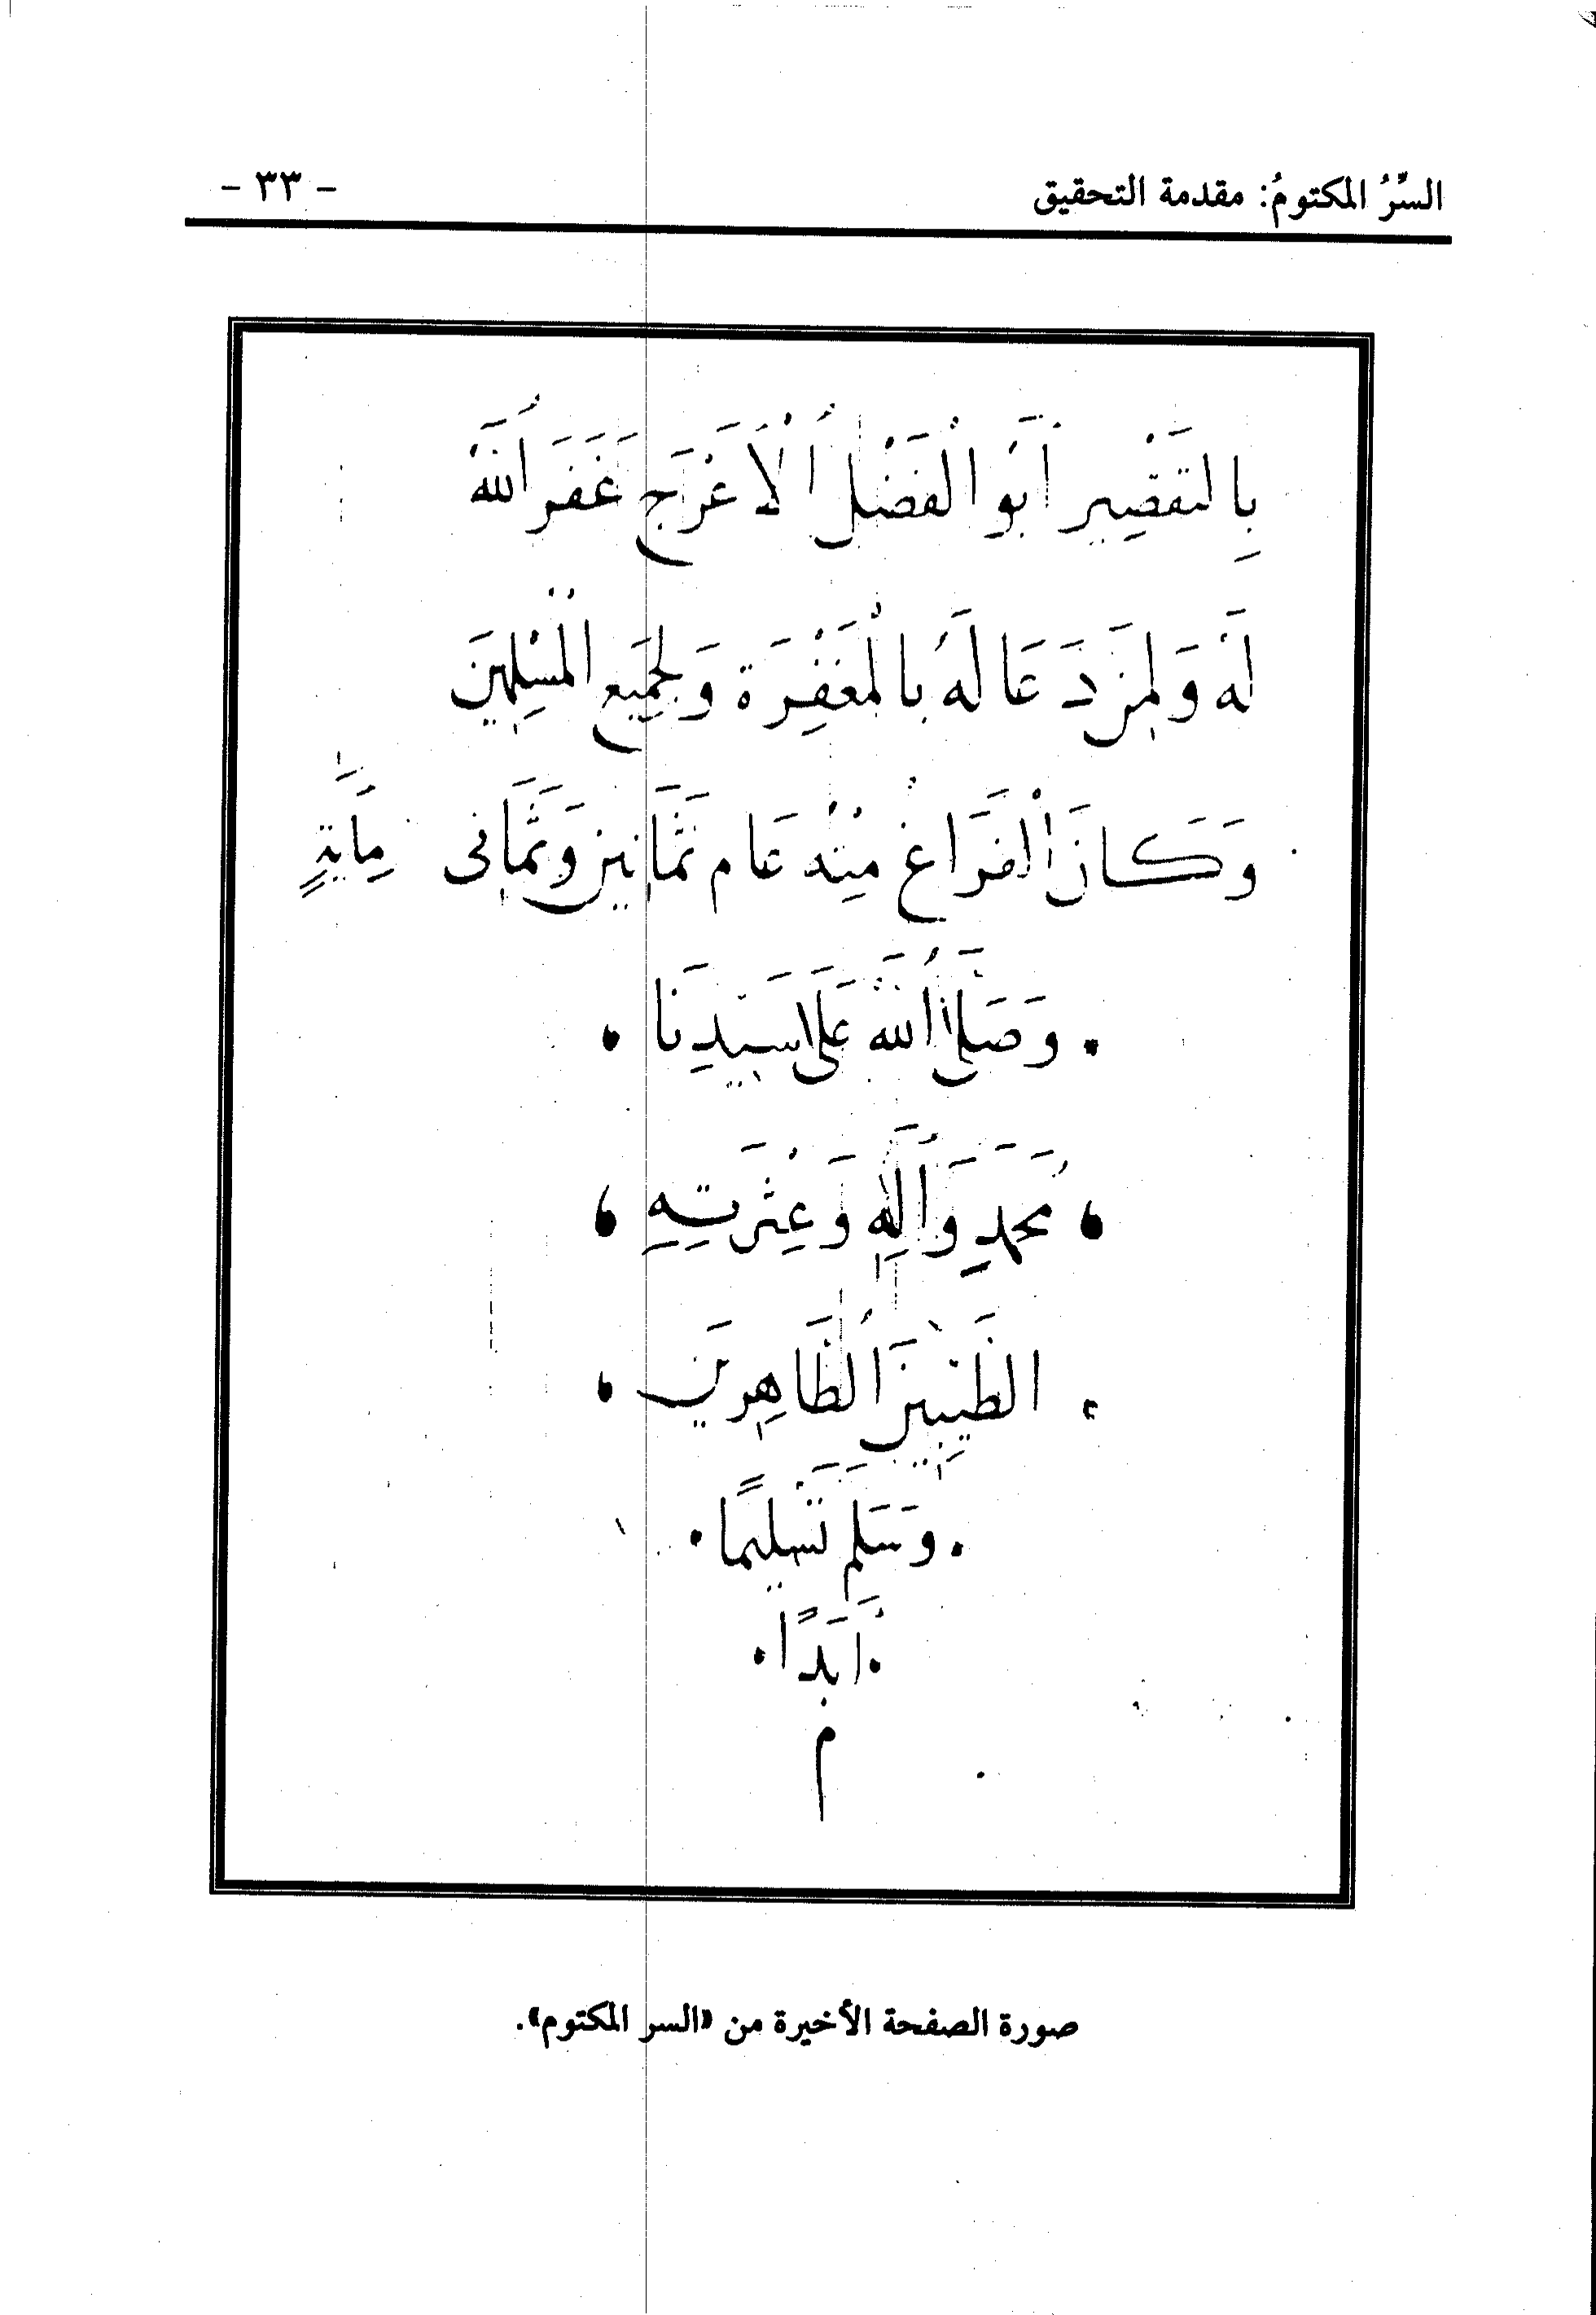 السِّرُ المكتومُ: مقدمة التحقيق
- ٣٣ -
بِالتقَصِير أَبُو الْفَضْل الْأَعْرَج غَفَرَ اللهُ
لَهُ وَلِمَنْ دَعَا لَهُ بِالْمَغْفِرَة وَلِجَمِيعِ الْمُسْلِمِينَ
وَكَانَ الْفَرَاغُ مِنْهُ عَام ثَمَانِينَ وَثَمَانِى مِايَةٍ
وَصَلَّى اللهُ عَلَى سَيِّدِنَا
مُحَمَّدٍ وَآلِهِ وَعِتْرَتِهِ
الطَّيِّبِينَ الطَّاهِرِينَ
وَسَلَّمَ تَسْلِيمًا
أَبَدًا
م
صورة الصفحة الأخيرة من «السر المكتوم».